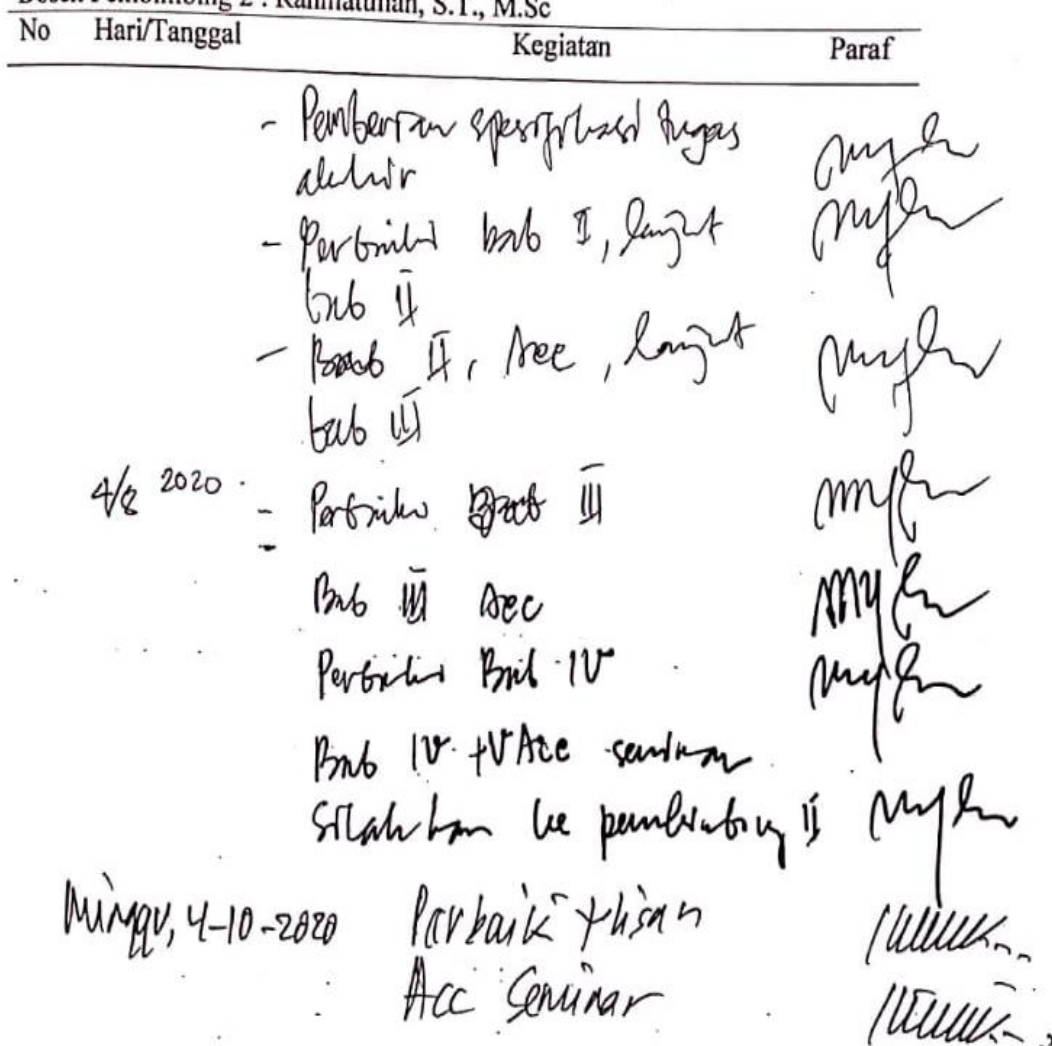 Dosen Pembimbing 2 : Rahmatunah, S.T., M.Sc
No Hari/Tanggal Kegiatan Paraf
- Pemberian spesifikasi tugas
akhir
- Perbaiki bab I, lanjut
bab II
- Bab II, Acc, lanjut
bab III
4/8 2020 - Perbaiki Bab III
Bab III Acc
Perbaiki Bab IV
Bab IV + V Acc seminar
Silahkan ke pembimbing II
Minggu, 4-10-2020 Perbaiki tulisan
Acc Seminar